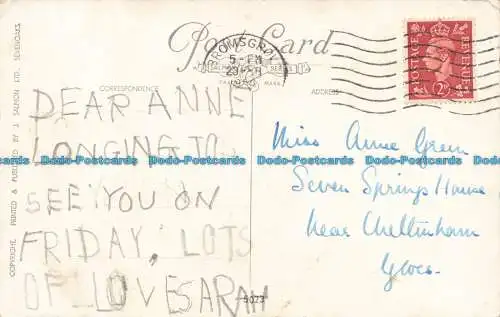 Post Card
BROMSGROVE
5-PM
CORRESPONDENCE
ADDRESS
POSTAGE REVENUE
2½D
DEAR ANNE
LONGING TO
SEE YOU ON
FRIDAY, LOTS
OF LOVE SARAH
Miss Anne Green
Seven Springs House
Near Cheltenham
Glos.
COPYRIGHT. PRINTED & PUBLISHED BY J. SALMON LTD., SEVENOAKS.
5073
Dodo-Postcards Dodo-Postcards Dodo-Postcards Dodo-Postcards Dodo-Postcards